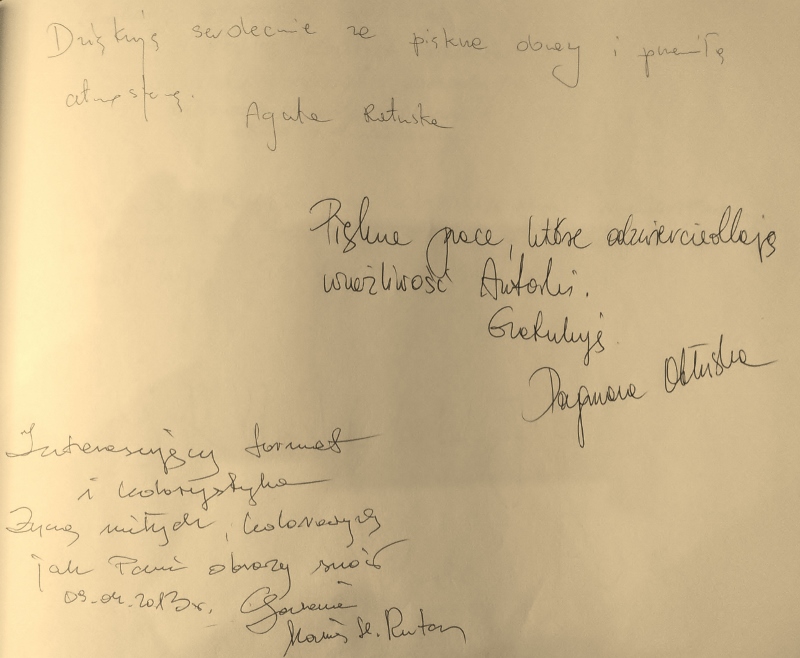 Dziękuję serdecznie za piękne obrazy i przemiłą
atmosferę.
Agata
Piękne prace, które odzwierciedlają
wrażliwość Autorki.
Gratuluję
Dagmara
Interesujący format
i kolorystyka
Życzę miłych, kolorowych
jak Pani obrazy snów
09.04.2013 r.